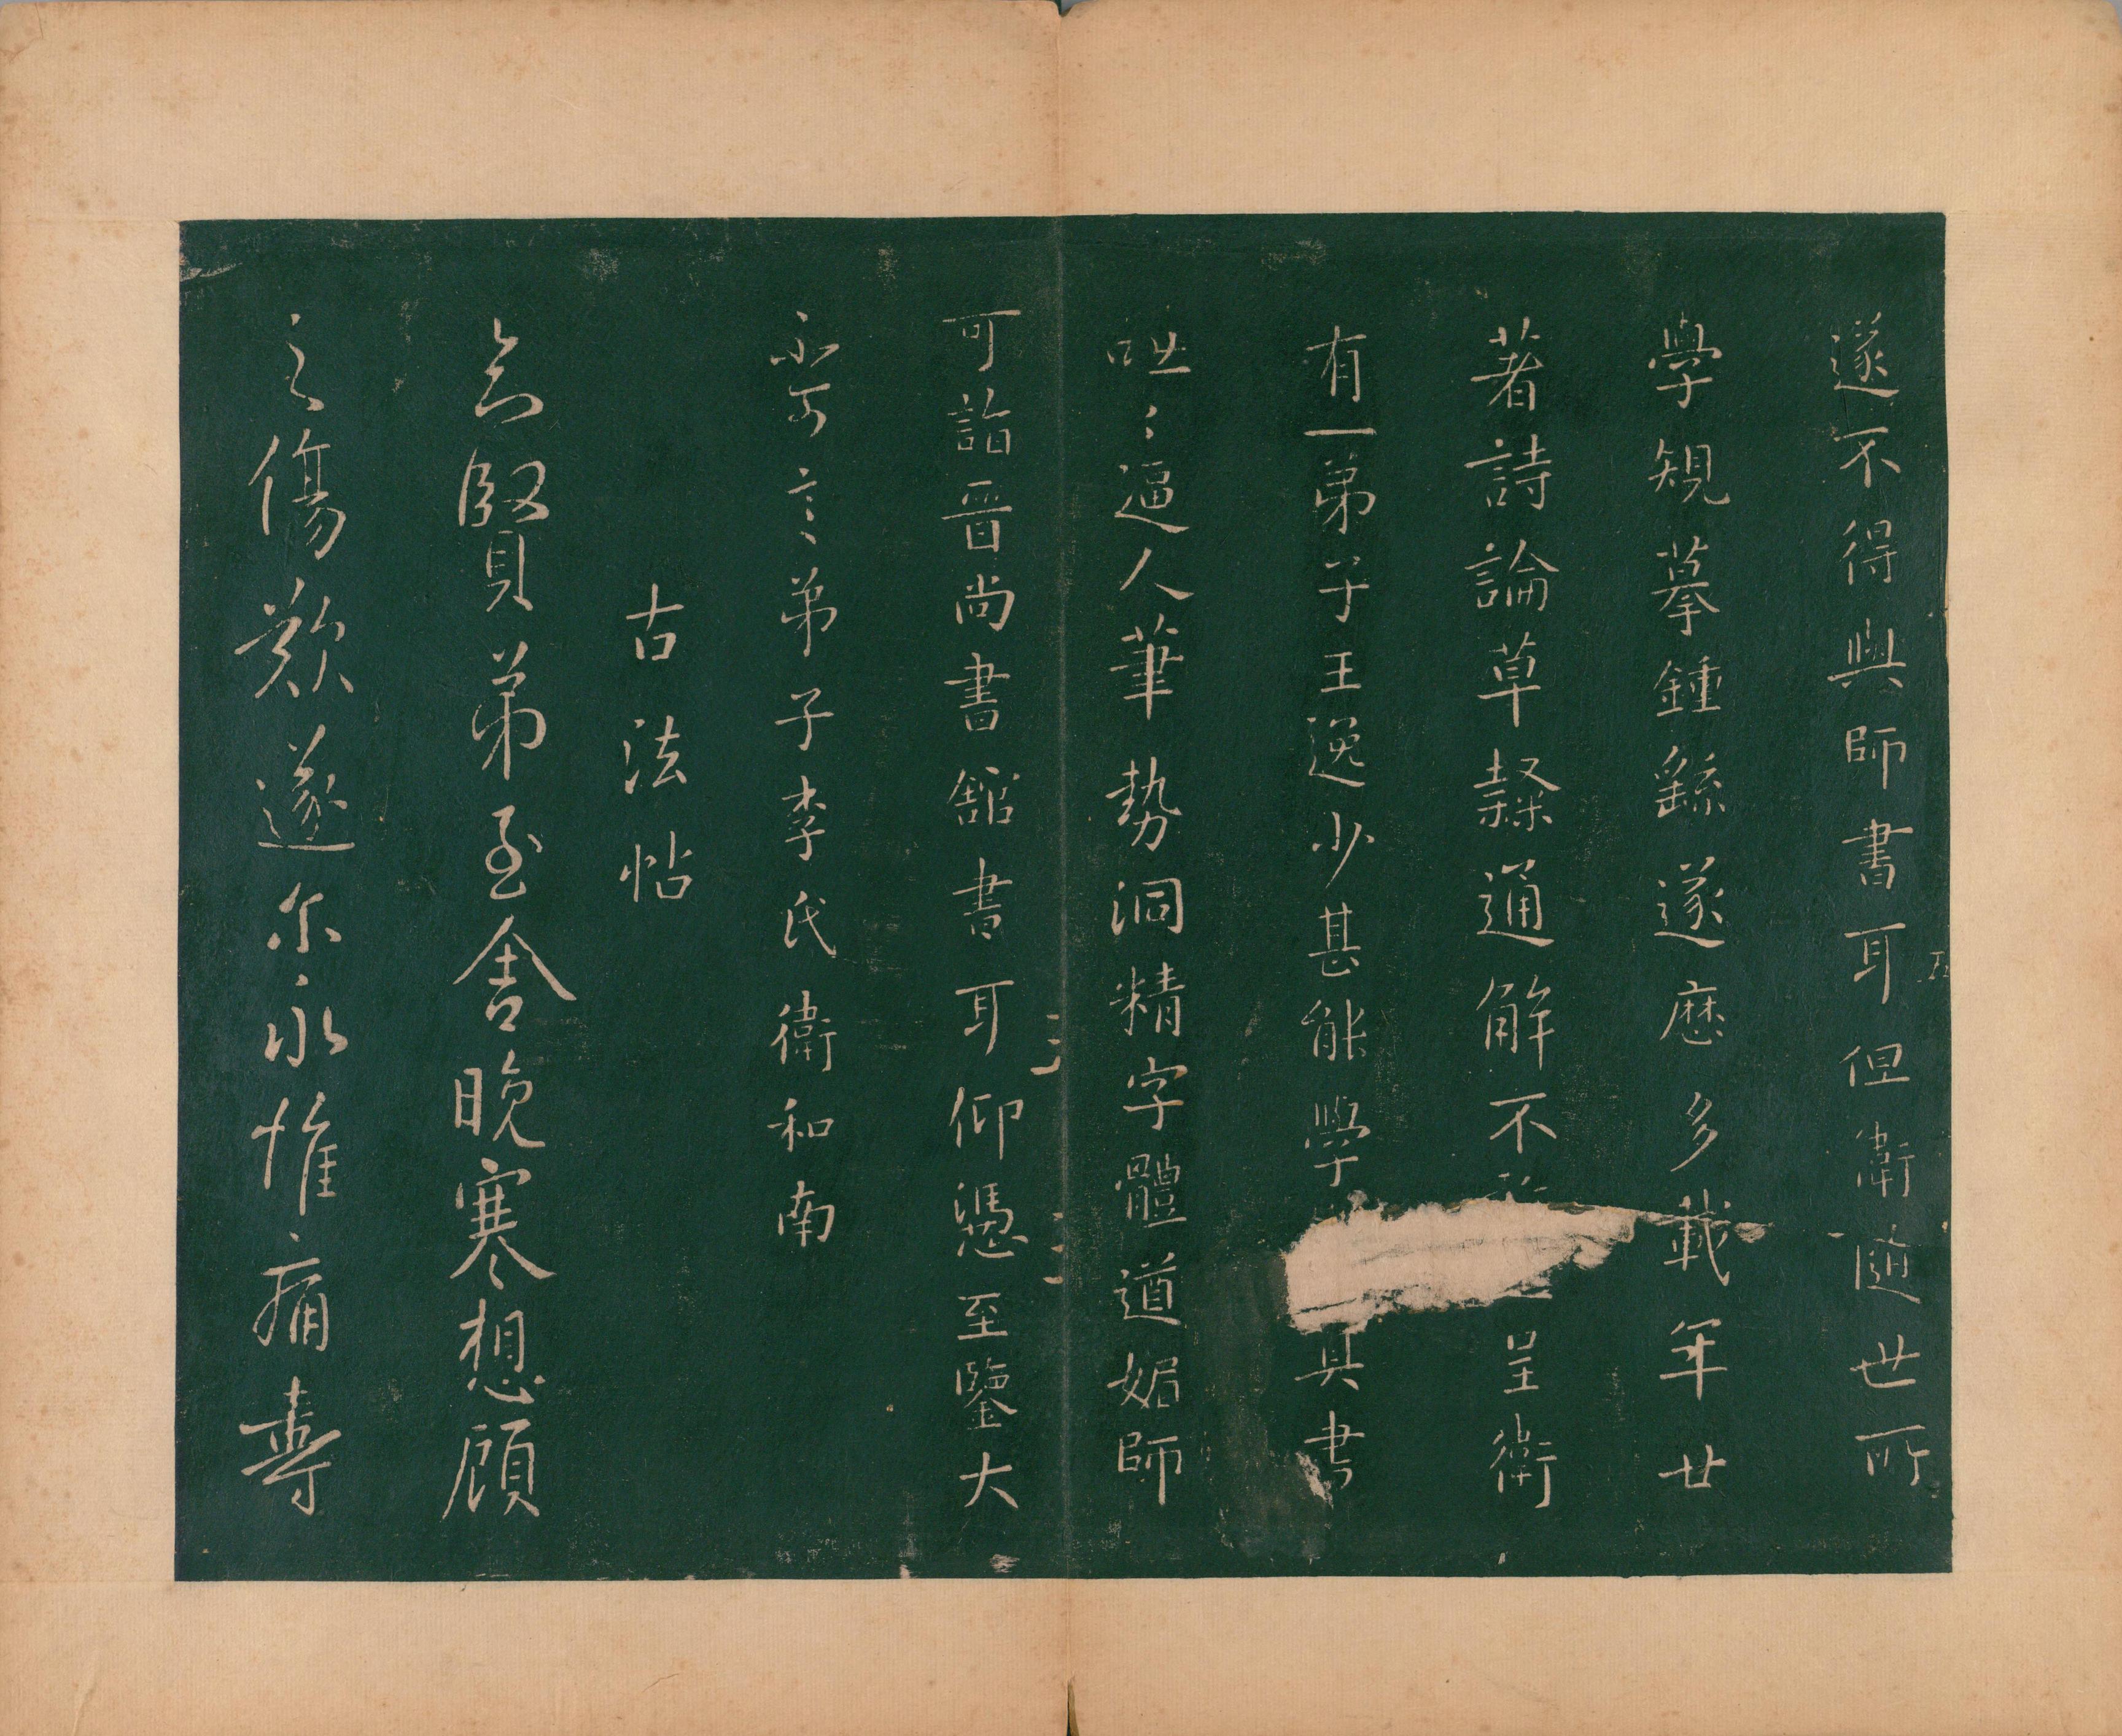 遂不得與師書耳但衛隨世所
學規摹鍾繇遂歷多載年廿
著詩論草隸通解不呈衛
有一弟子王逸少甚能學具書
咄咄逼人筆勢洞精字體遒媚師
可詣晉尚書館書耳仰憑至鑒大
不可言弟子李氏衛和南
古法帖
知賢弟至舍晚寒想顧
之傷歎遂尔永惟痛壽